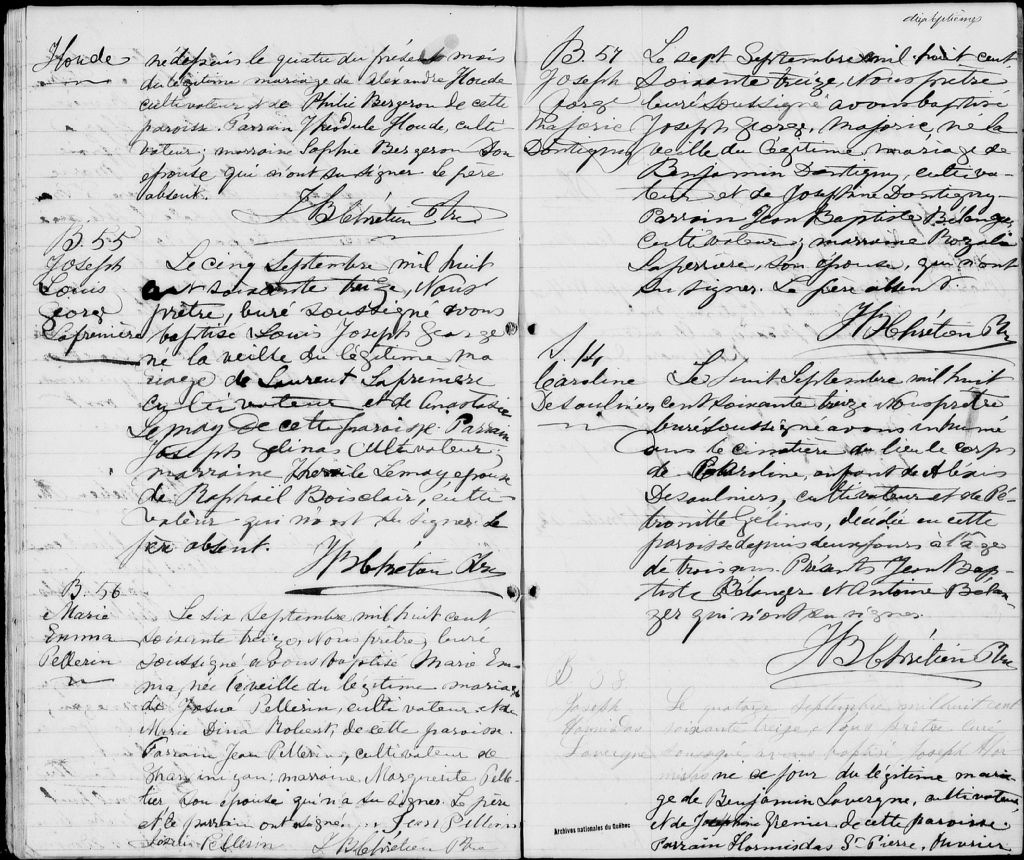 Houde
né depuis le quatre du présent mois
du légitime mariage de Alexandre Houde
cultivateur et de Philie Bergeron de cette
paroisse. Parrain Théodule Houde, culti
vateur; marraine Sophie Bergeron son
épouse qui n'ont su signer le père
absent.
JB Chrétien Ptre
B. 55
Joseph
Louis
George
Lafrenière
Le cinq Septembre mil huit
cent soixante treize, Nous
prêtre, curé soussigné avons
baptisé Louis Joseph George
né la veille du légitime ma
riage de Laurent Lafrenière
cultivateur et de Anastasie
Lemay de cette paroisse. Parrain
Joseph Gélinas cultivateur;
marraine Lemay epouse
de Raphaël Boisclair, culti
vateur qui n'ont su signer le
père absent.
JB Chrétien Ptre
B. 56
Marie
Emma
Pellerin
Le six Septembre mil huit cent
soixante treize, Nous prêtre, curé
soussigné avons baptisé Marie Em-
ma, née la veille du légitime mariage
de Josué Pellerin, cultivateur et de
Marie Dina Robert, de cette paroisse.
Parrain Jean Pellerin, cultivateur de
Shawinigan; marraine, Marguerite Pelle
tier son épouse qui n'a su signer. Le père
et le parrain ont signé. Jean Pellerin
Pellerin JB Chrétien Ptre
dix septième
B. 57
Joseph
George
Majoric
Dontigny
Le sept Septembre mil huit cent
soixante treize, Nous prêtre
curé soussigné avons baptisé
Joseph George, Majoric, né la
veille du légitime mariage de
Benjamin Dontigny, cultiva-
teur et de Josephine Dontigny
Parrain Jean Baptiste Bélanger,
cultivateur; marraine Rozalie
Laperrière, son épouse, qui n'ont
su signer. Le père absent.
JB Chrétien Ptre
S. 14
Caroline
Desaulniers
Le huit Septembre mil huit
cent soixante treize Nous prêtre
curé soussigné avons inhumé
dans le cimetière du lieu le corps
de Caroline, enfant de Alexis
Desaulniers, cultivateur et de Pé-
tronille Gélinas, décédée en cette
paroisse depuis deux jours à l'âge
de trois ans. Présents Jean Bap-
tiste Bélanger et Antoine Bélan-
ger qui n'ont su signer.
JB Chrétien Ptre
B 58
Joseph
Hormisdas
Lavergne
Le quatorze Septembre mil huit cent
soixante treize, Nous prêtre curé
soussigné avons baptisé Joseph Hor-
misdas né ce jour du légitime maria-
ge de Benjamin Lavergne, cultivateur
et de Josephine Grenier de cette paroisse.
Parrain Hormisdas St Pierre, ouvrier
Archives nationales du Québec